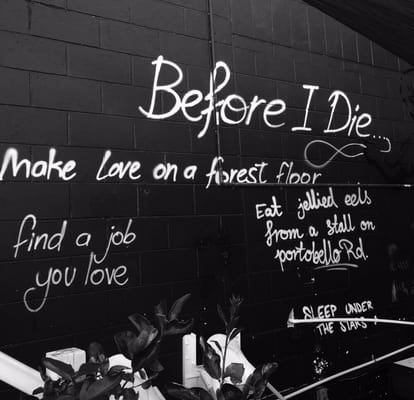 Before I Die...
Make Love on a forest floor
Eat jellied eels
from a stall on
portobello Rd.
find a job
you love
SLEEP UNDER
THE STARS